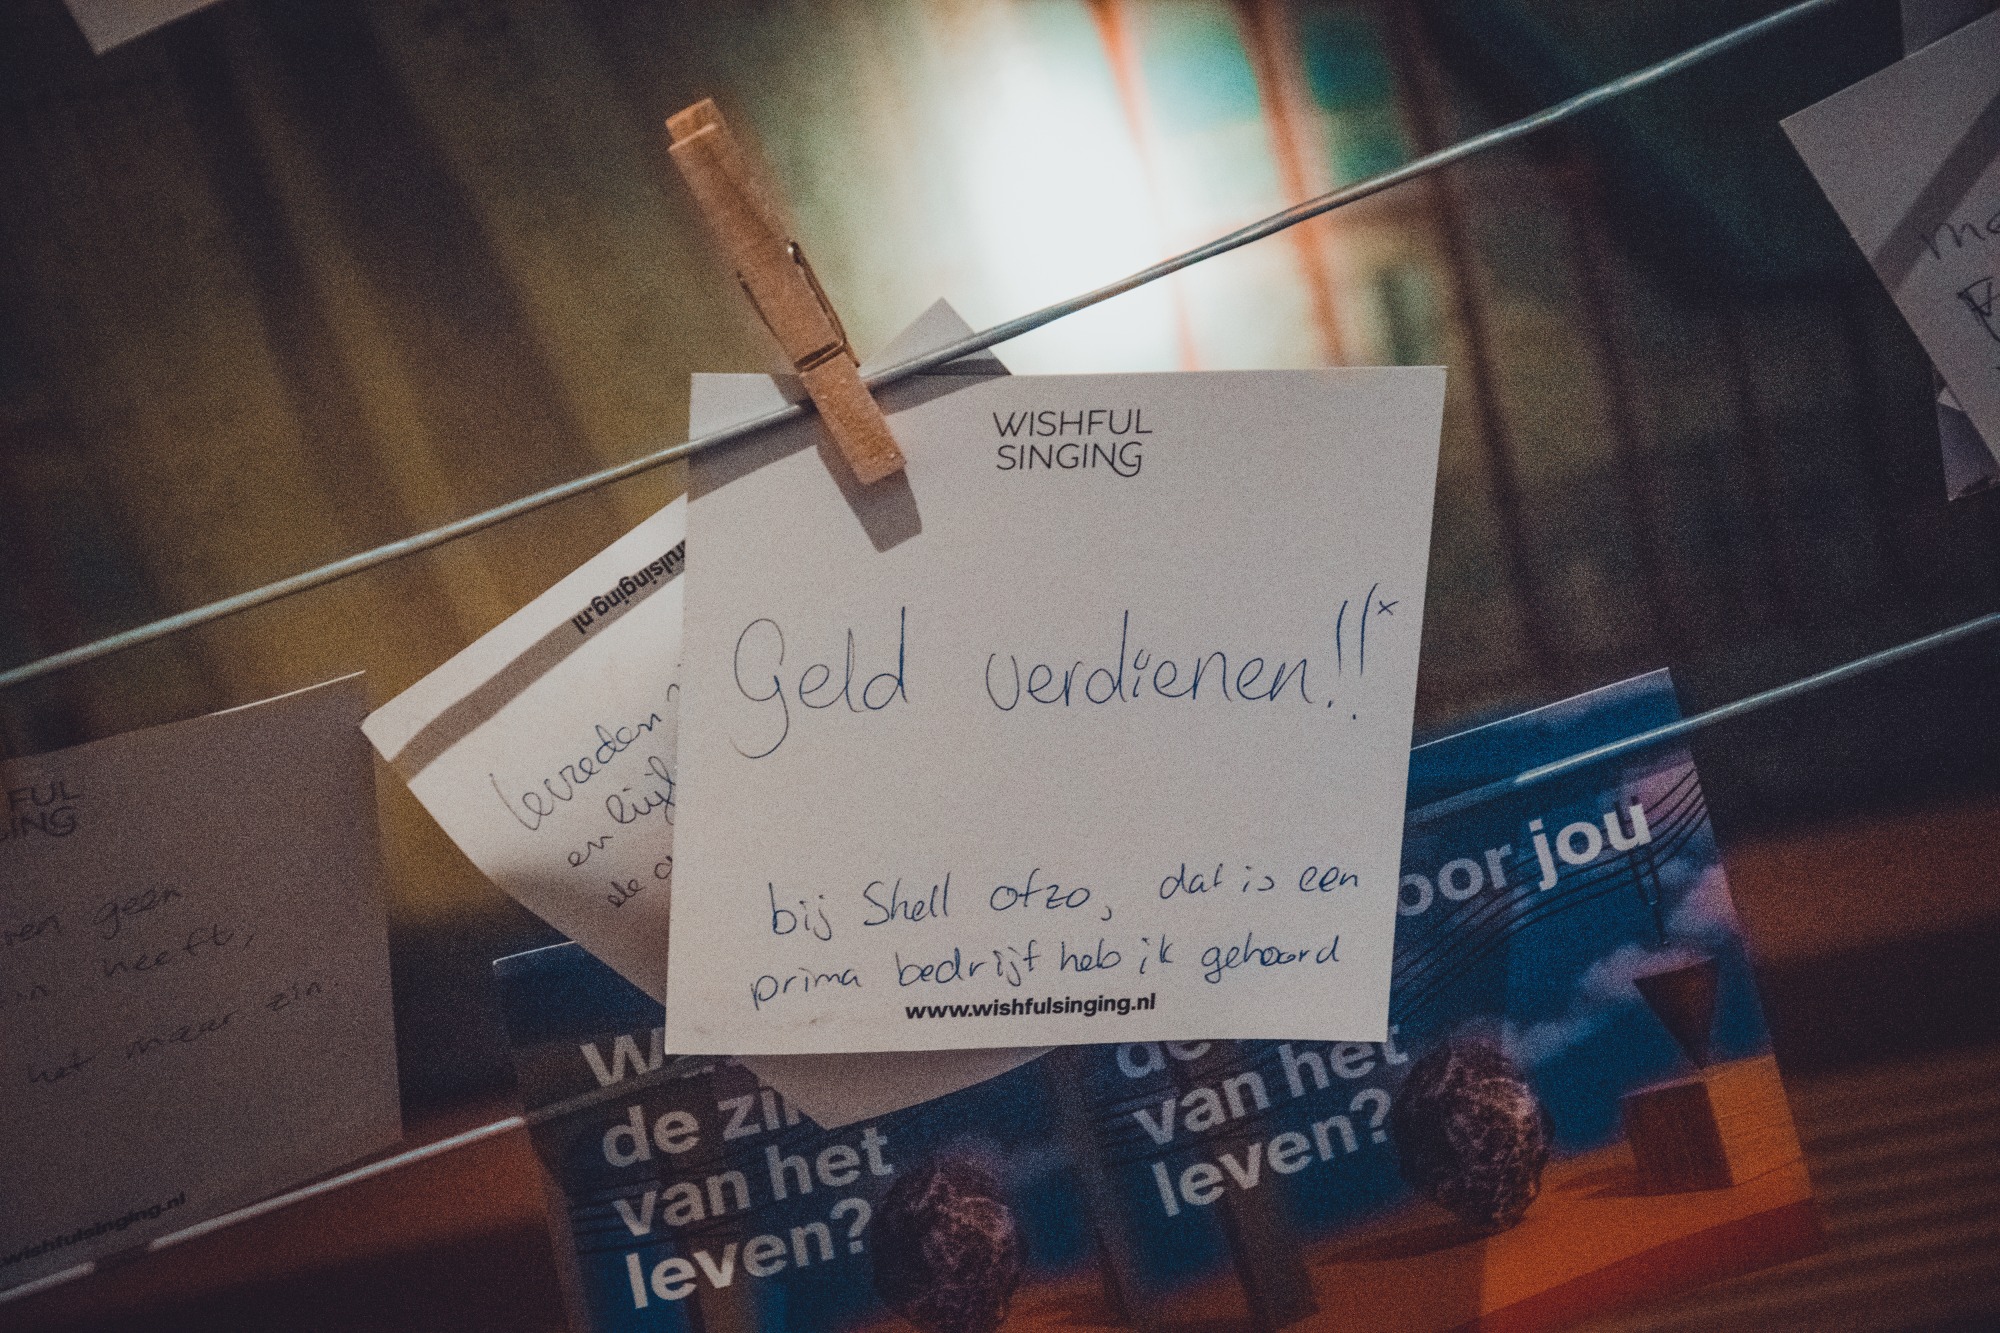 WISHFUL
SINGING
Geld verdienen!!x
bij Shell ofzo, dat is een
prima bedrijf heb ik gehoord
www.wishfulsinging.nl
fulsinging.nl
tevreden
en
de
FUL
ING
ren geen
in heeft,
het maar zin.
wishfulsinging.nl
oor jou
de
van het
leven?
W
de zin
van het
leven?